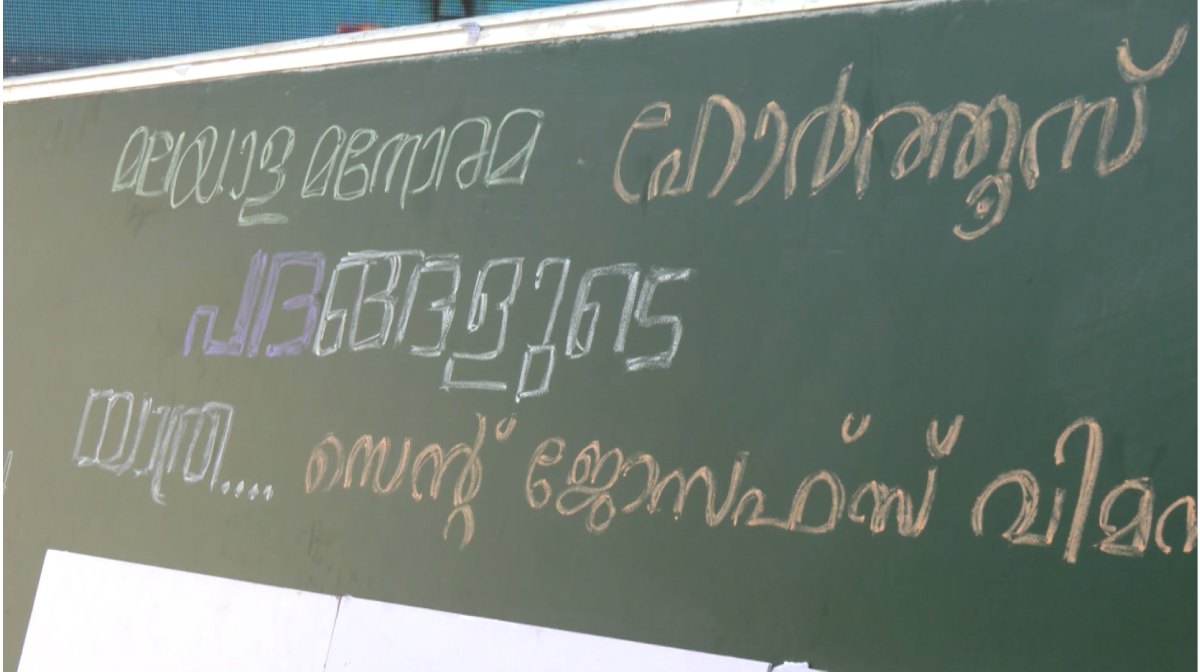 മലയാള മനോരമ ഹോർത്തൂസ്
പദങ്ങളുടെ
യാത്ര.... സെന്റ് ജോസഫ്സ്